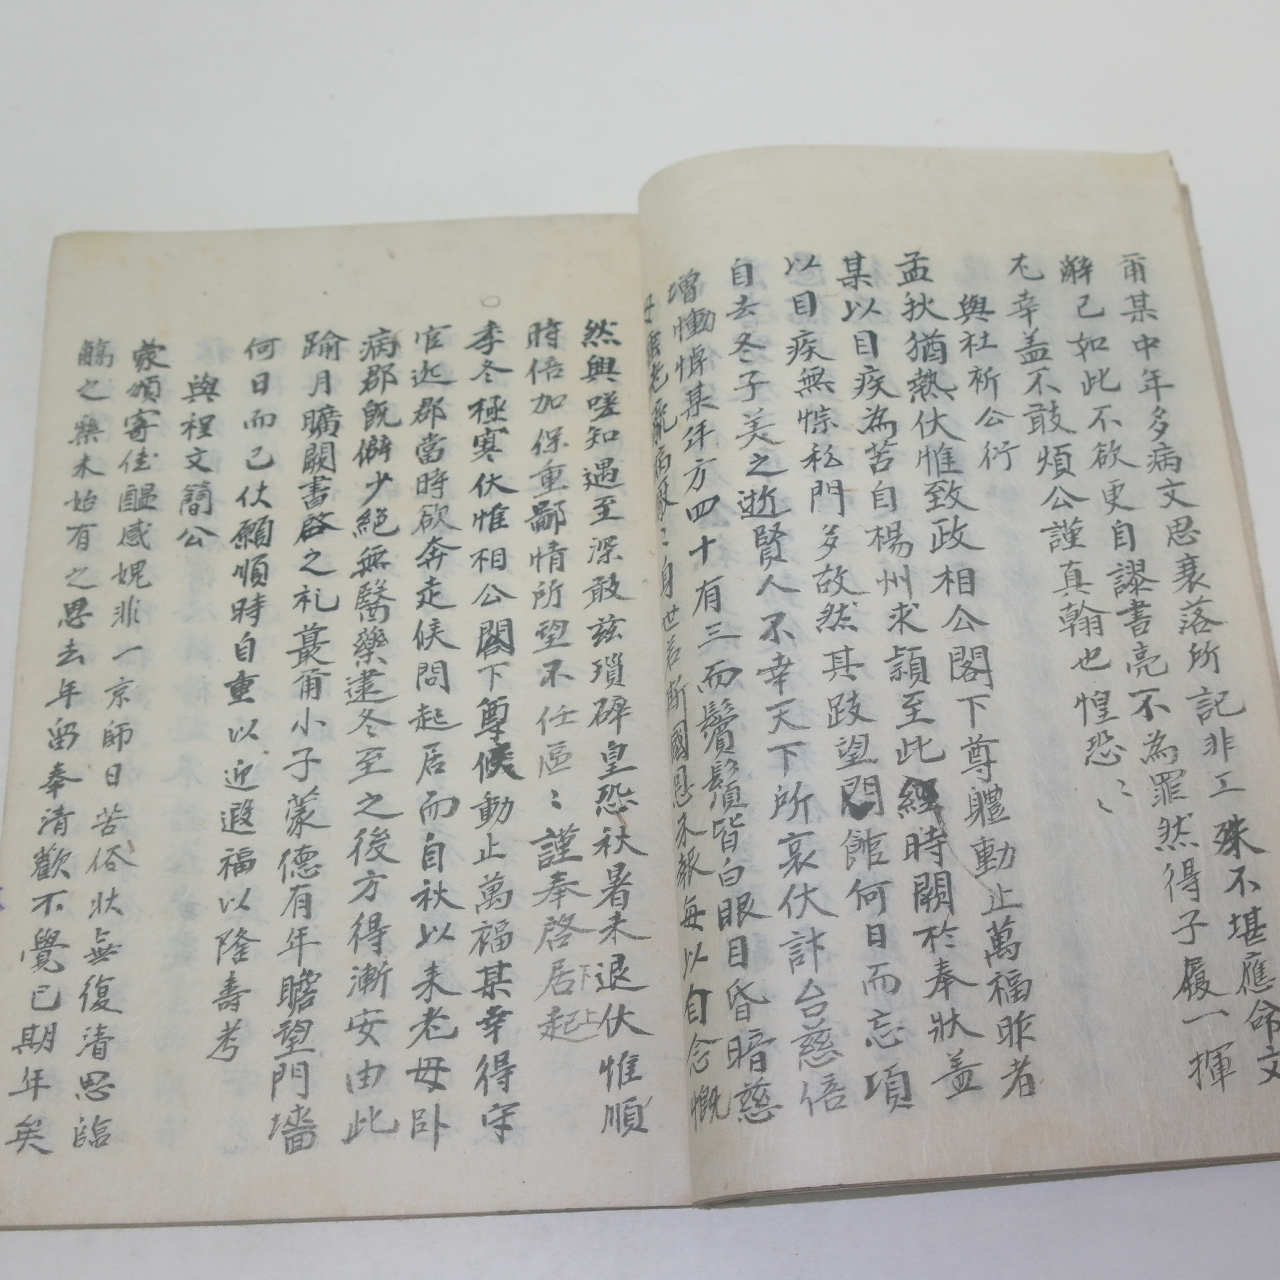 爾某中年多病文思衰落所記非工殊不堪應命文
辭已如此不欲更自謬書亮不為罪然得子履一揮
尤幸盖不敢煩公謹真翰也惶恐〻
與杜祈公衍
孟秋猶熱伏惟致政相公閤下尊軆動止萬福昨者
某以目疾為苦自楊州求頴至此經時闕於奉狀盖
以目疾無悰私門多故然其跂望門館何日而忘項
自去冬子美之逝賢人不幸天下所哀伏計台慈倍
增慟悼某年方四十有三而鬢鬚皆白眼目昏暗慈
母老病自世國恩未報每以自念慨
然興嗟知遇至深敢玆瑣碎皇恐秋暑未退伏惟順
時倍加保重鄙情所望不任區〻謹奉啓居起
下上
○季冬極寒伏惟相公閤下尊候動止萬福某幸得守
官迩郡當時欲奔走候問起居而自秋以来老母卧
病郡旣僻少絶無醫藥逮冬至之後方得漸安由此
踰月曠闕書啓之礼蕞爾小子蒙德有年瞻望門墻
何日而已伏願順時自重以迎遐福以隆壽考
與程文簡公
蒙頒寄佳醞感媿非一京師日苦俗狀無復清思臨
觴之樂未始有之思去年留奉清歡不覺已期年矣